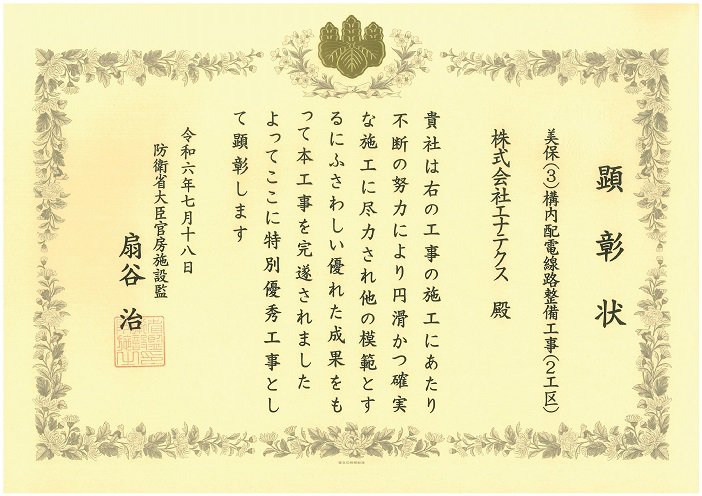 顕彰状
美保(3)構内配電線路整備工事(2工区)
株式会社エナテクス 殿
貴社は右の工事の施工にあたり
不断の努力により円滑かつ確実
な施工に尽力され他の模範とす
るにふさわしい優れた成果をも
って本工事を完遂されました
よってここに特別優秀工事とし
て顕彰します
令和六年七月十八日
防衛省大臣官房施設監
扇谷 治